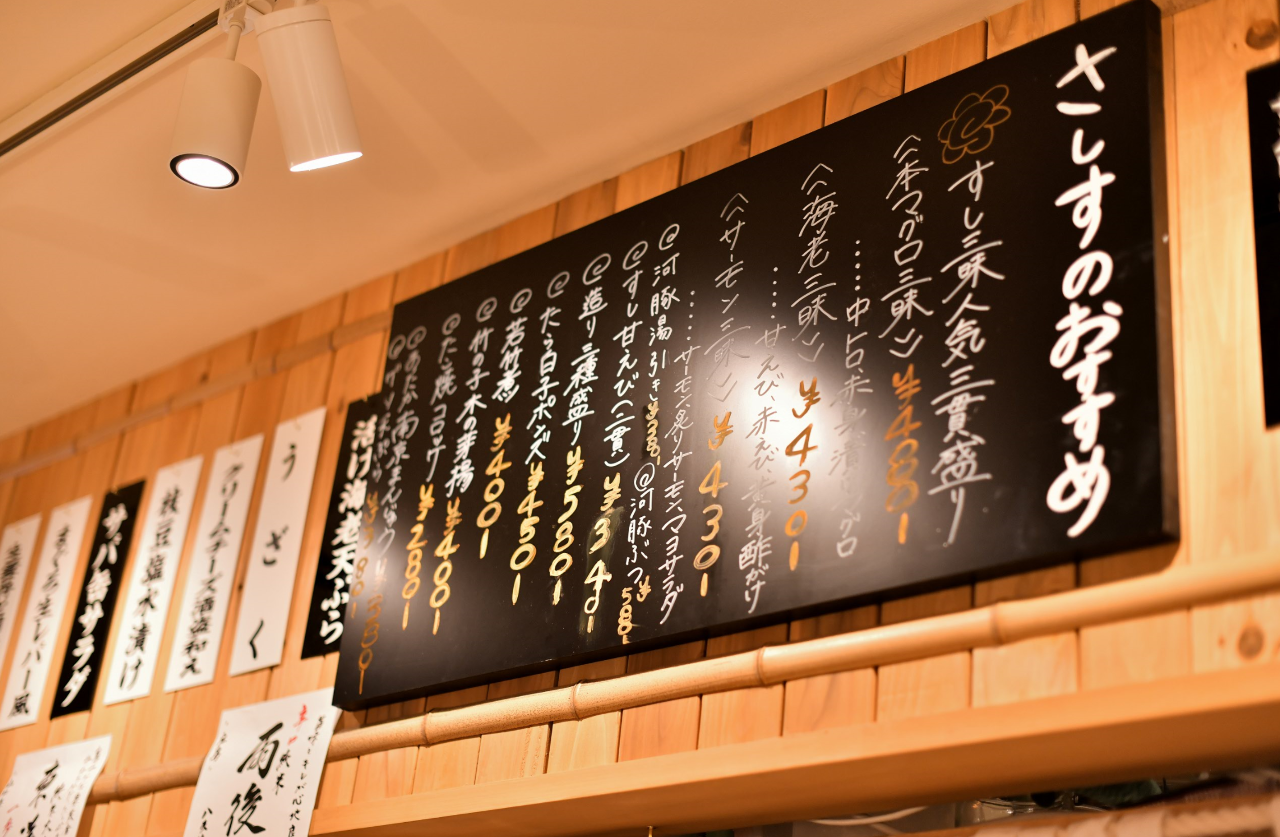 さしすのおすすめ
すし三昧人気三貫盛り
〈本マグロ三昧〉 ¥480-
……中トロ、赤身、漬けマグロ
〈海老三昧〉 ¥430-
……甘えび、赤えび、黄身酢がけ
〈サーモン三昧〉 ¥430-
……サーモン、炙りサーモン、マヨサラダ
@河豚湯引き
@河豚ぶつ ¥580-
@すし甘えび(二貫) ¥340-
@造り三種盛り ¥580-
@たら白子ポンズ ¥450-
@若竹煮 ¥400-
@竹の子木の芽揚 ¥400-
@たこ焼コロッケ ¥280-
活け海老天ぷら
うざく
クリームチーズ酒盗和え
枝豆塩水漬け
サバ缶サラダ
生レバー風
雨後